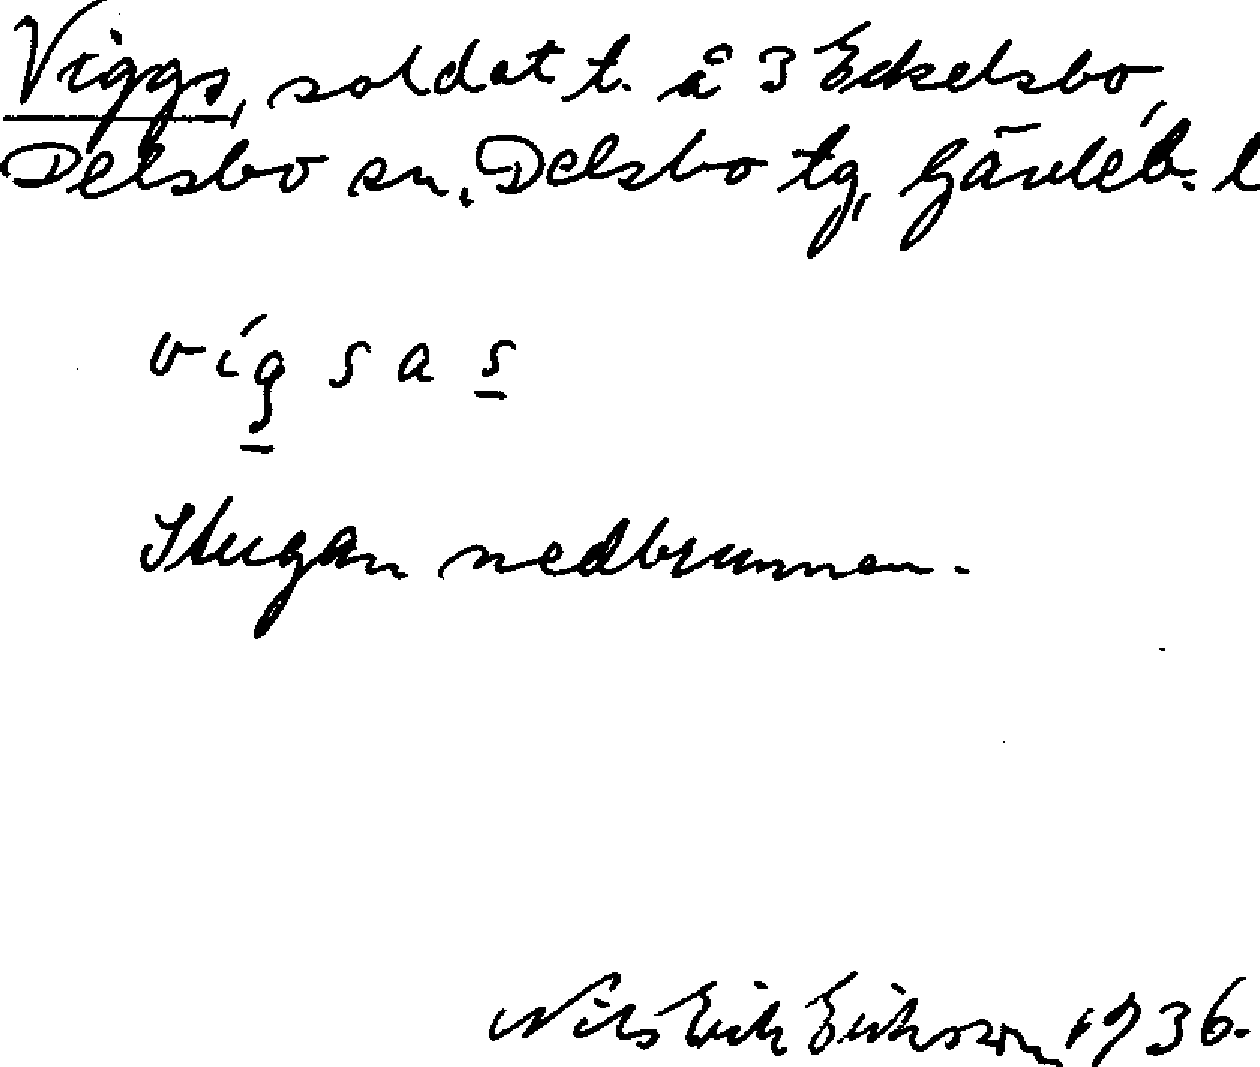 Viggs, soldat t. å 3 Eckelsbo,
Delsbo sn, Delsbo tg, Gävleb. l
vígsas
Stugan nedbrunnen.
Nils Erik Eriksson 1936.